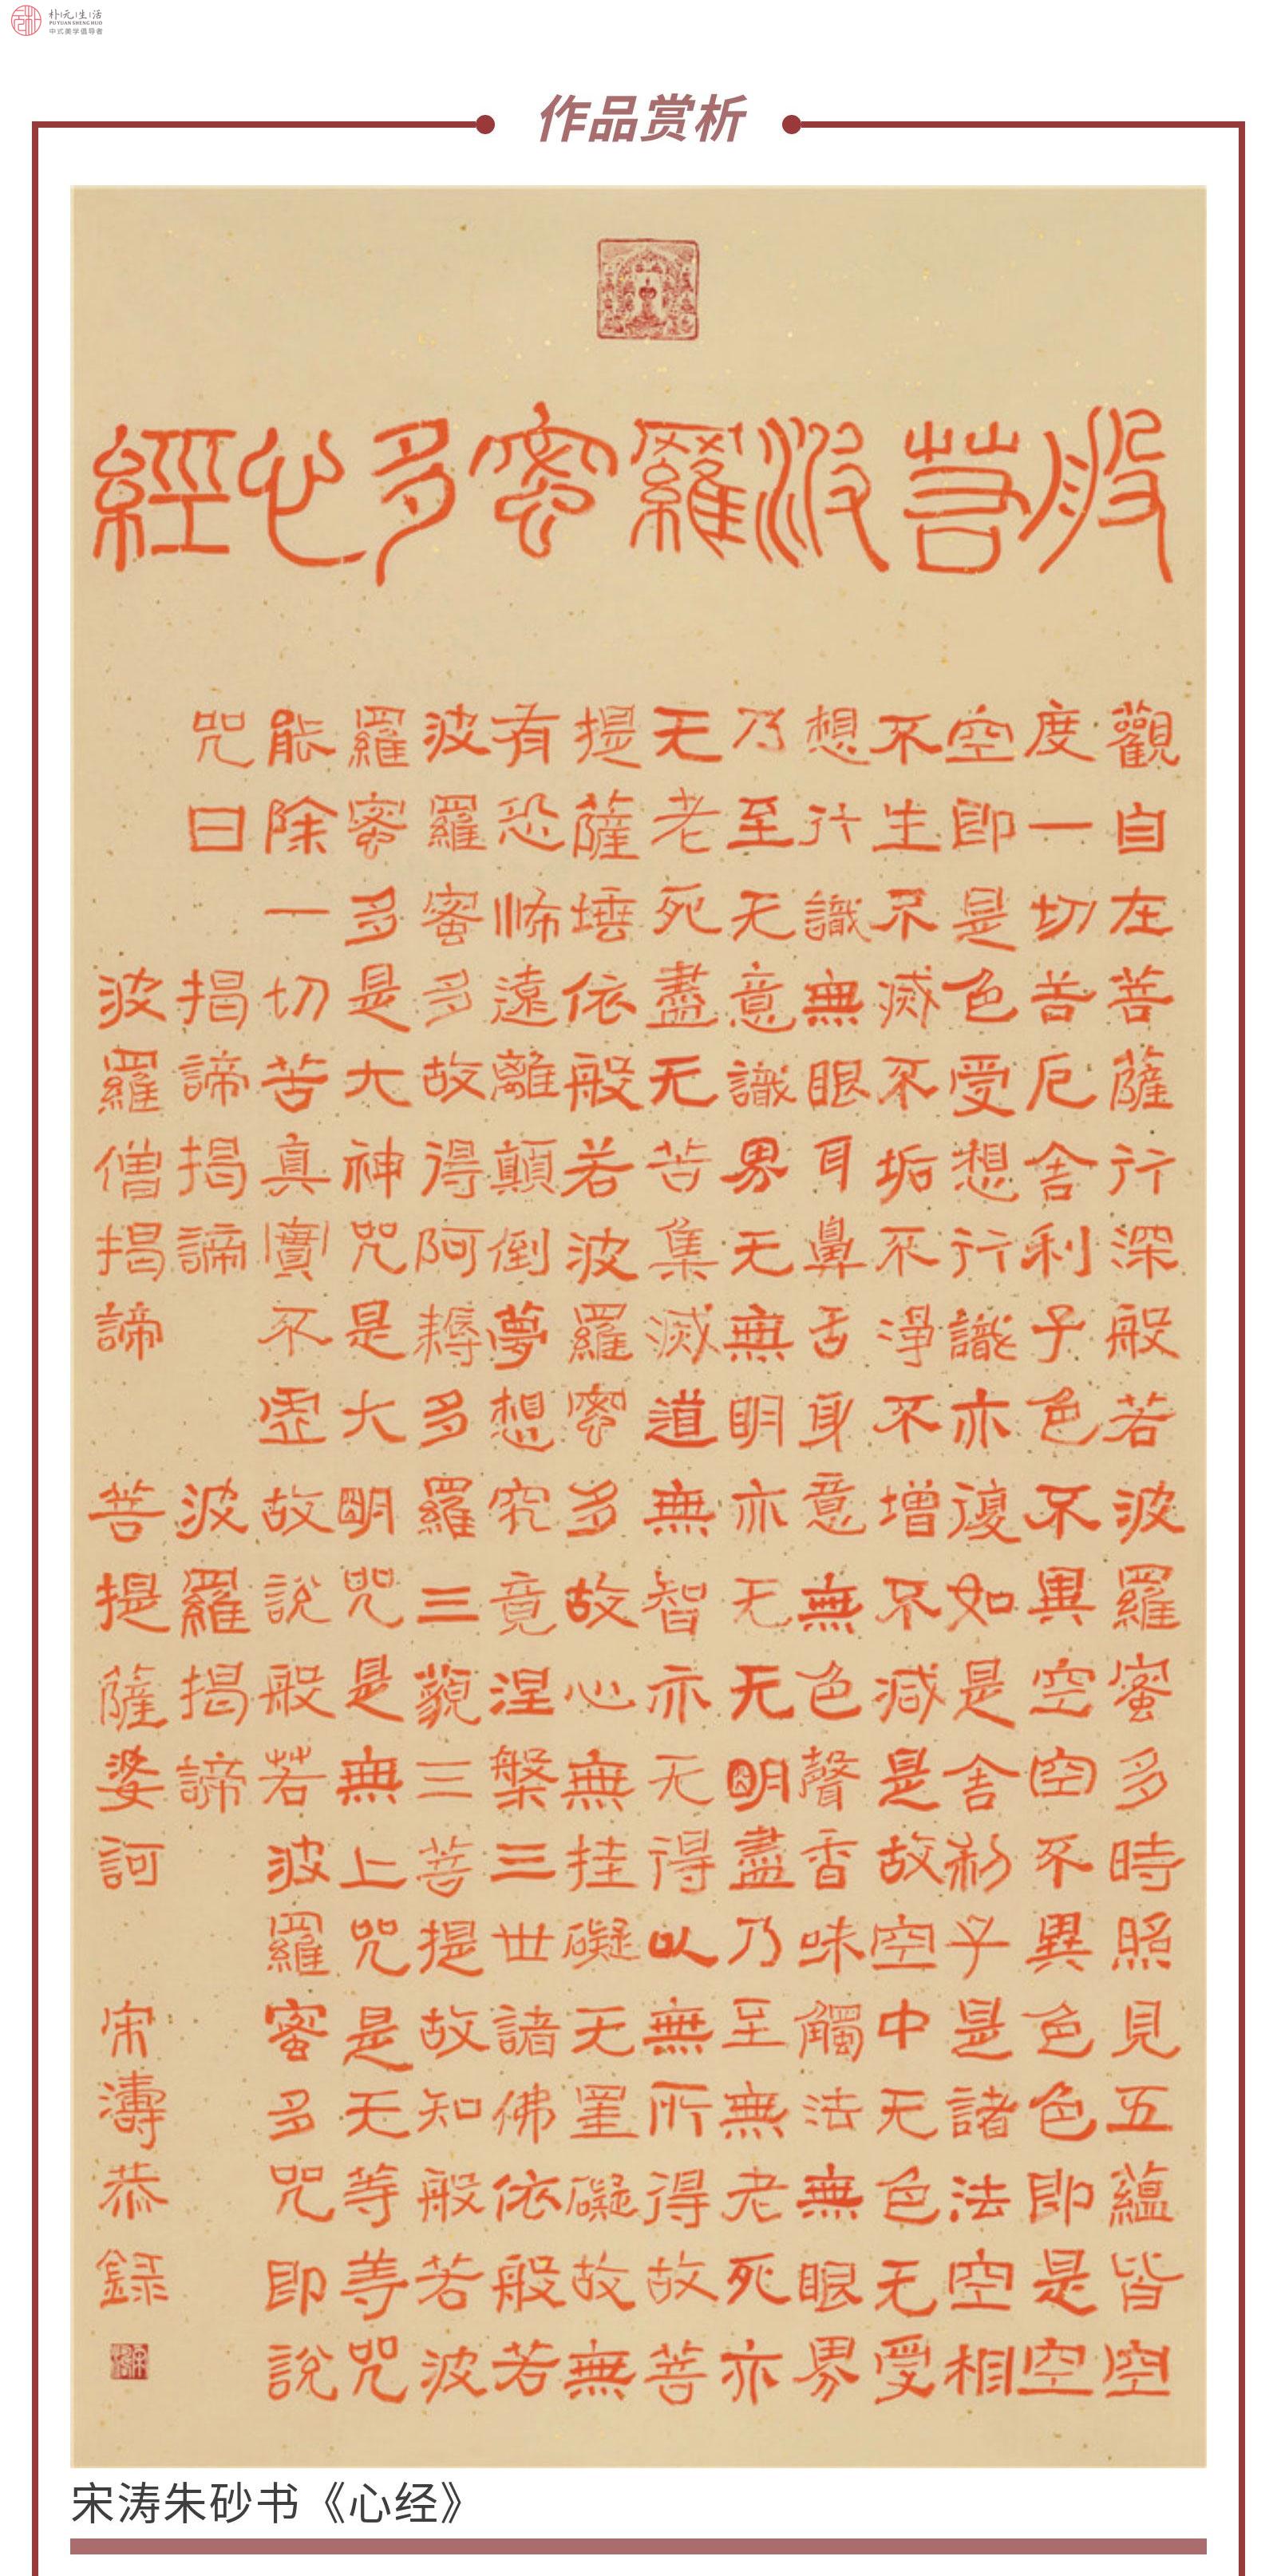 朴元生活
PU YUAN SHENG HUO
中式美学倡导者
作品赏析
般若波羅蜜多心經
觀自在菩薩行深般若波羅蜜多時照見五蘊皆空
度一切苦厄舍利子色不異空空不異色色即是空
空即是色受想行識亦復如是舍利子是諸法空相
不生不滅不垢不淨不增不減是故空中无色无受
想行識無眼耳鼻舌身意無色聲香味觸法無眼界
乃至无意識界无無明亦无无明盡乃至無老死亦
无老死盡无苦集滅道無智亦无得以無所得故菩
提薩埵依般若波羅蜜多故心無挂礙无罣礙故無
有恐怖遠離顛倒夢想究竟涅槃三世諸佛依般若
波羅蜜多故得阿耨多羅三藐三菩提故知般若波
羅蜜多是大神咒是大明咒是無上咒是无等等咒
能除一切苦真實不虛故說般若波羅蜜多咒即說
咒曰 揭諦揭諦 波羅揭諦
波羅僧揭諦 菩提薩婆訶 宋濤恭録
宋涛朱砂书《心经》